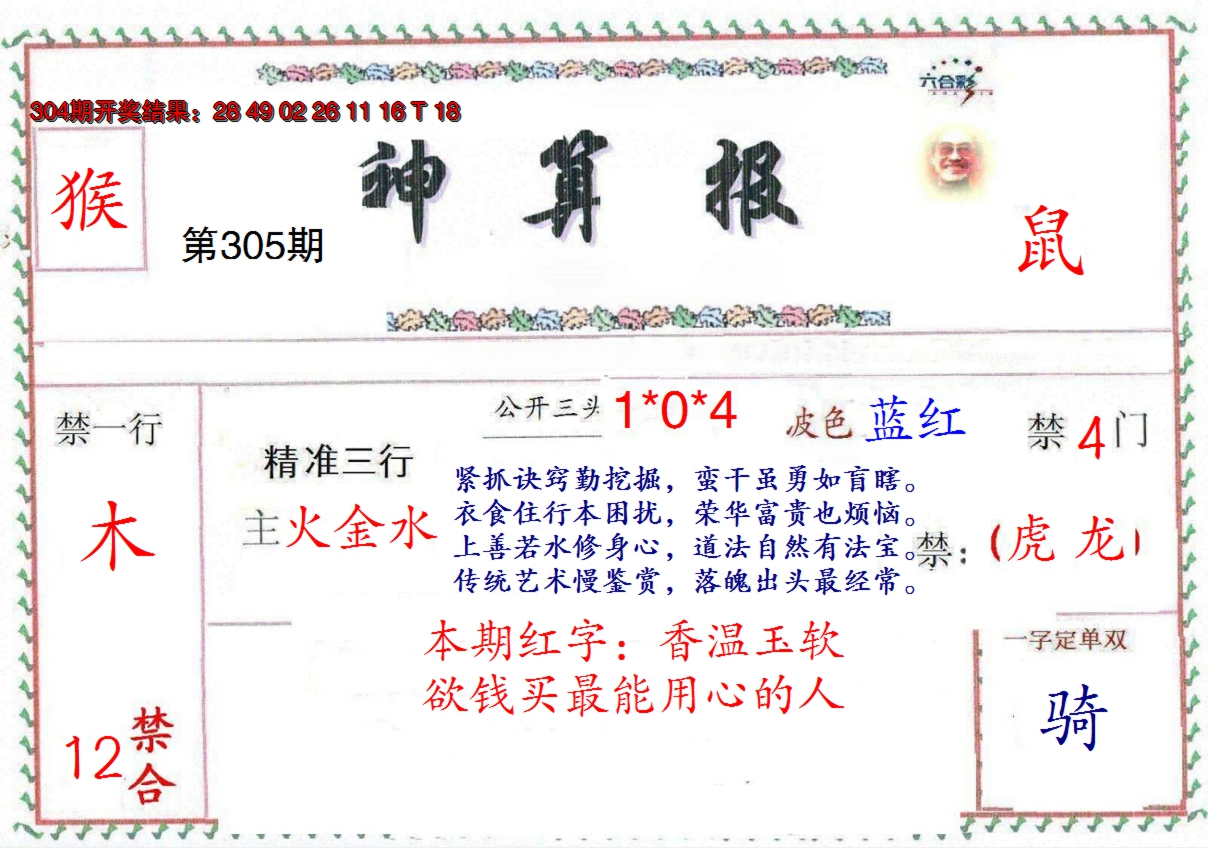 六合彩
304期开奖结果：28 49 02 26 11 16 T 18
神算报
猴
第305期
鼠
禁一行
木
12禁合
精准三行
主火金水
公开三头 1*0*4
波色 蓝红
紧抓诀窍勤挖掘，蛮干虽勇如盲瞎。
衣食住行本困扰，荣华富贵也烦恼。
上善若水修身心，道法自然有法宝。
传统艺术慢鉴赏，落魄出头最经常。
本期红字：香温玉软
欲钱买最能用心的人
禁4门
禁：（虎 龙）
一字定单双
骑